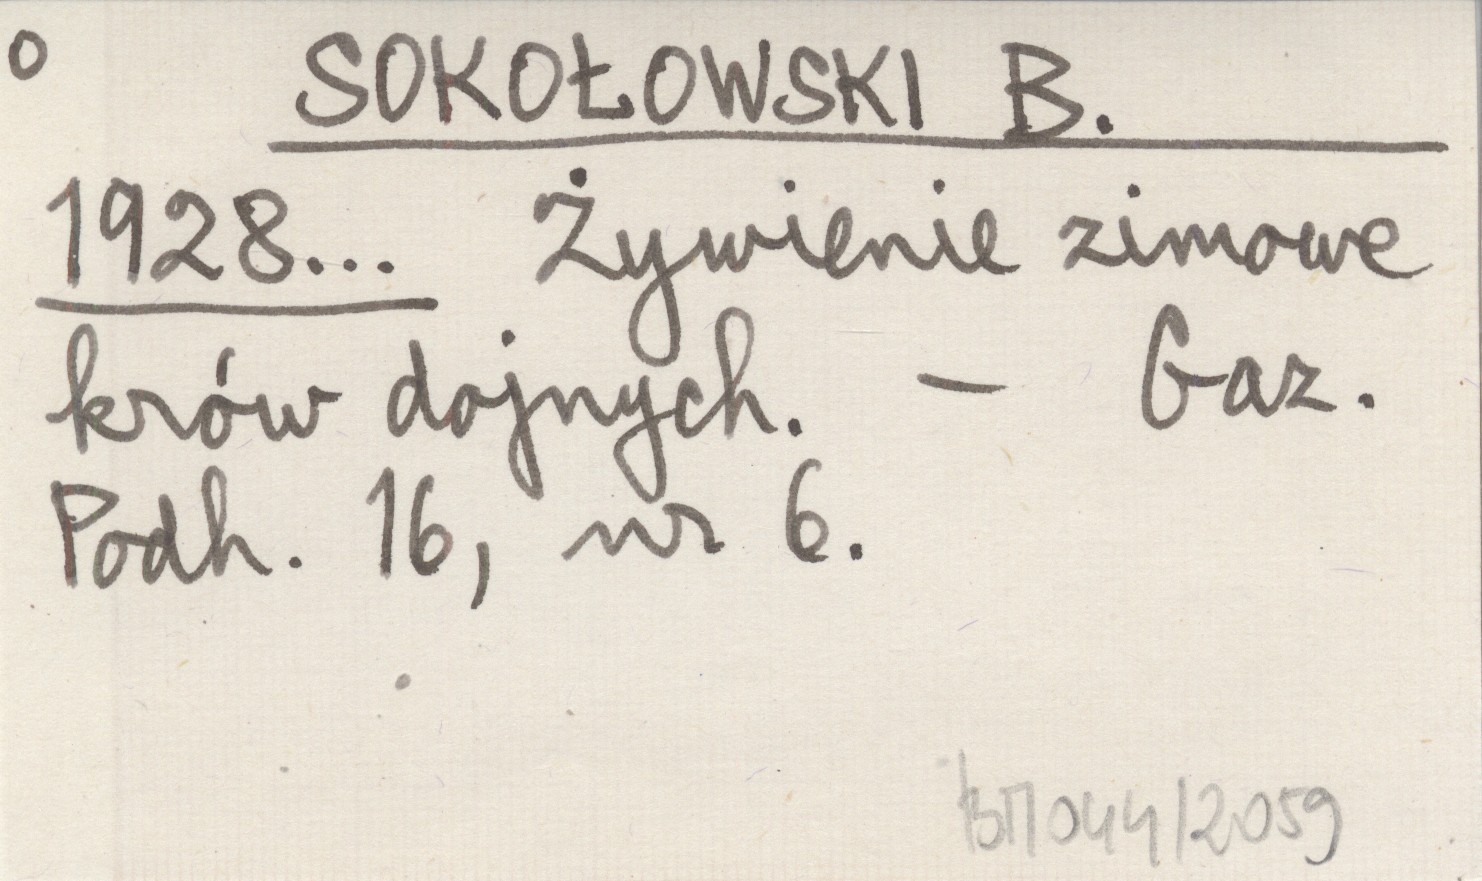 o SOKOŁOWSKI B.
1928... Żywienie zimowe
krów dojnych. — Gaz.
Podh. 16, nr 6.
044/2059